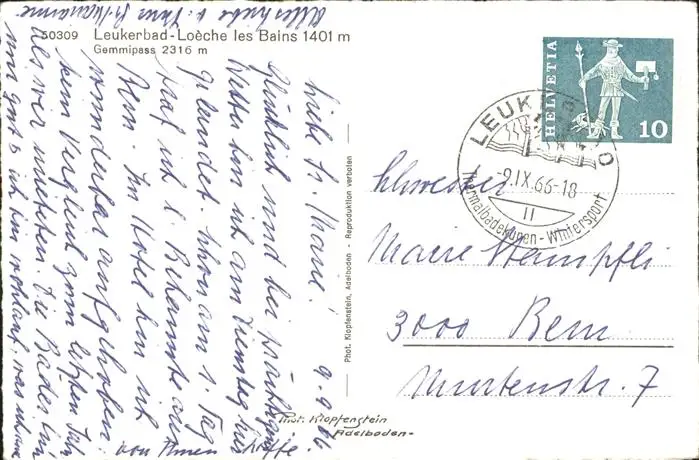 50309 Leukerbad-Loèche les Bains 1401 m
Gemmipass 2316 m
9.9.66
Liebe Sr. !
Glücklich und bei prächtigem
Wetter bin ich am Dienstag hier
gelandet. Schon am 1. Tag
traf ich 2 Bekannte aus
Bern. Im Hotel bin ich
wunderbar aufgehoben
kein Vergleich zum letzten Jahr
als wir mieteten. Die Bäder tun
mir gut & ich bin wohlauf, was ich auch
von Ihnen hoffe.
Alles Liebe v. Ihrer Sr. Marianne
Phot. Klopfenstein, Adelboden - Reproduktion verboten
Phot. Klopfenstein
Adelboden-
HELVETIA
10
LEUKERBAD
-9.IX.66-18
II
Thermalbadekuren - Wintersport
Schwester
Marie Stämpfli
3000 Bern
Murtenstr. 7